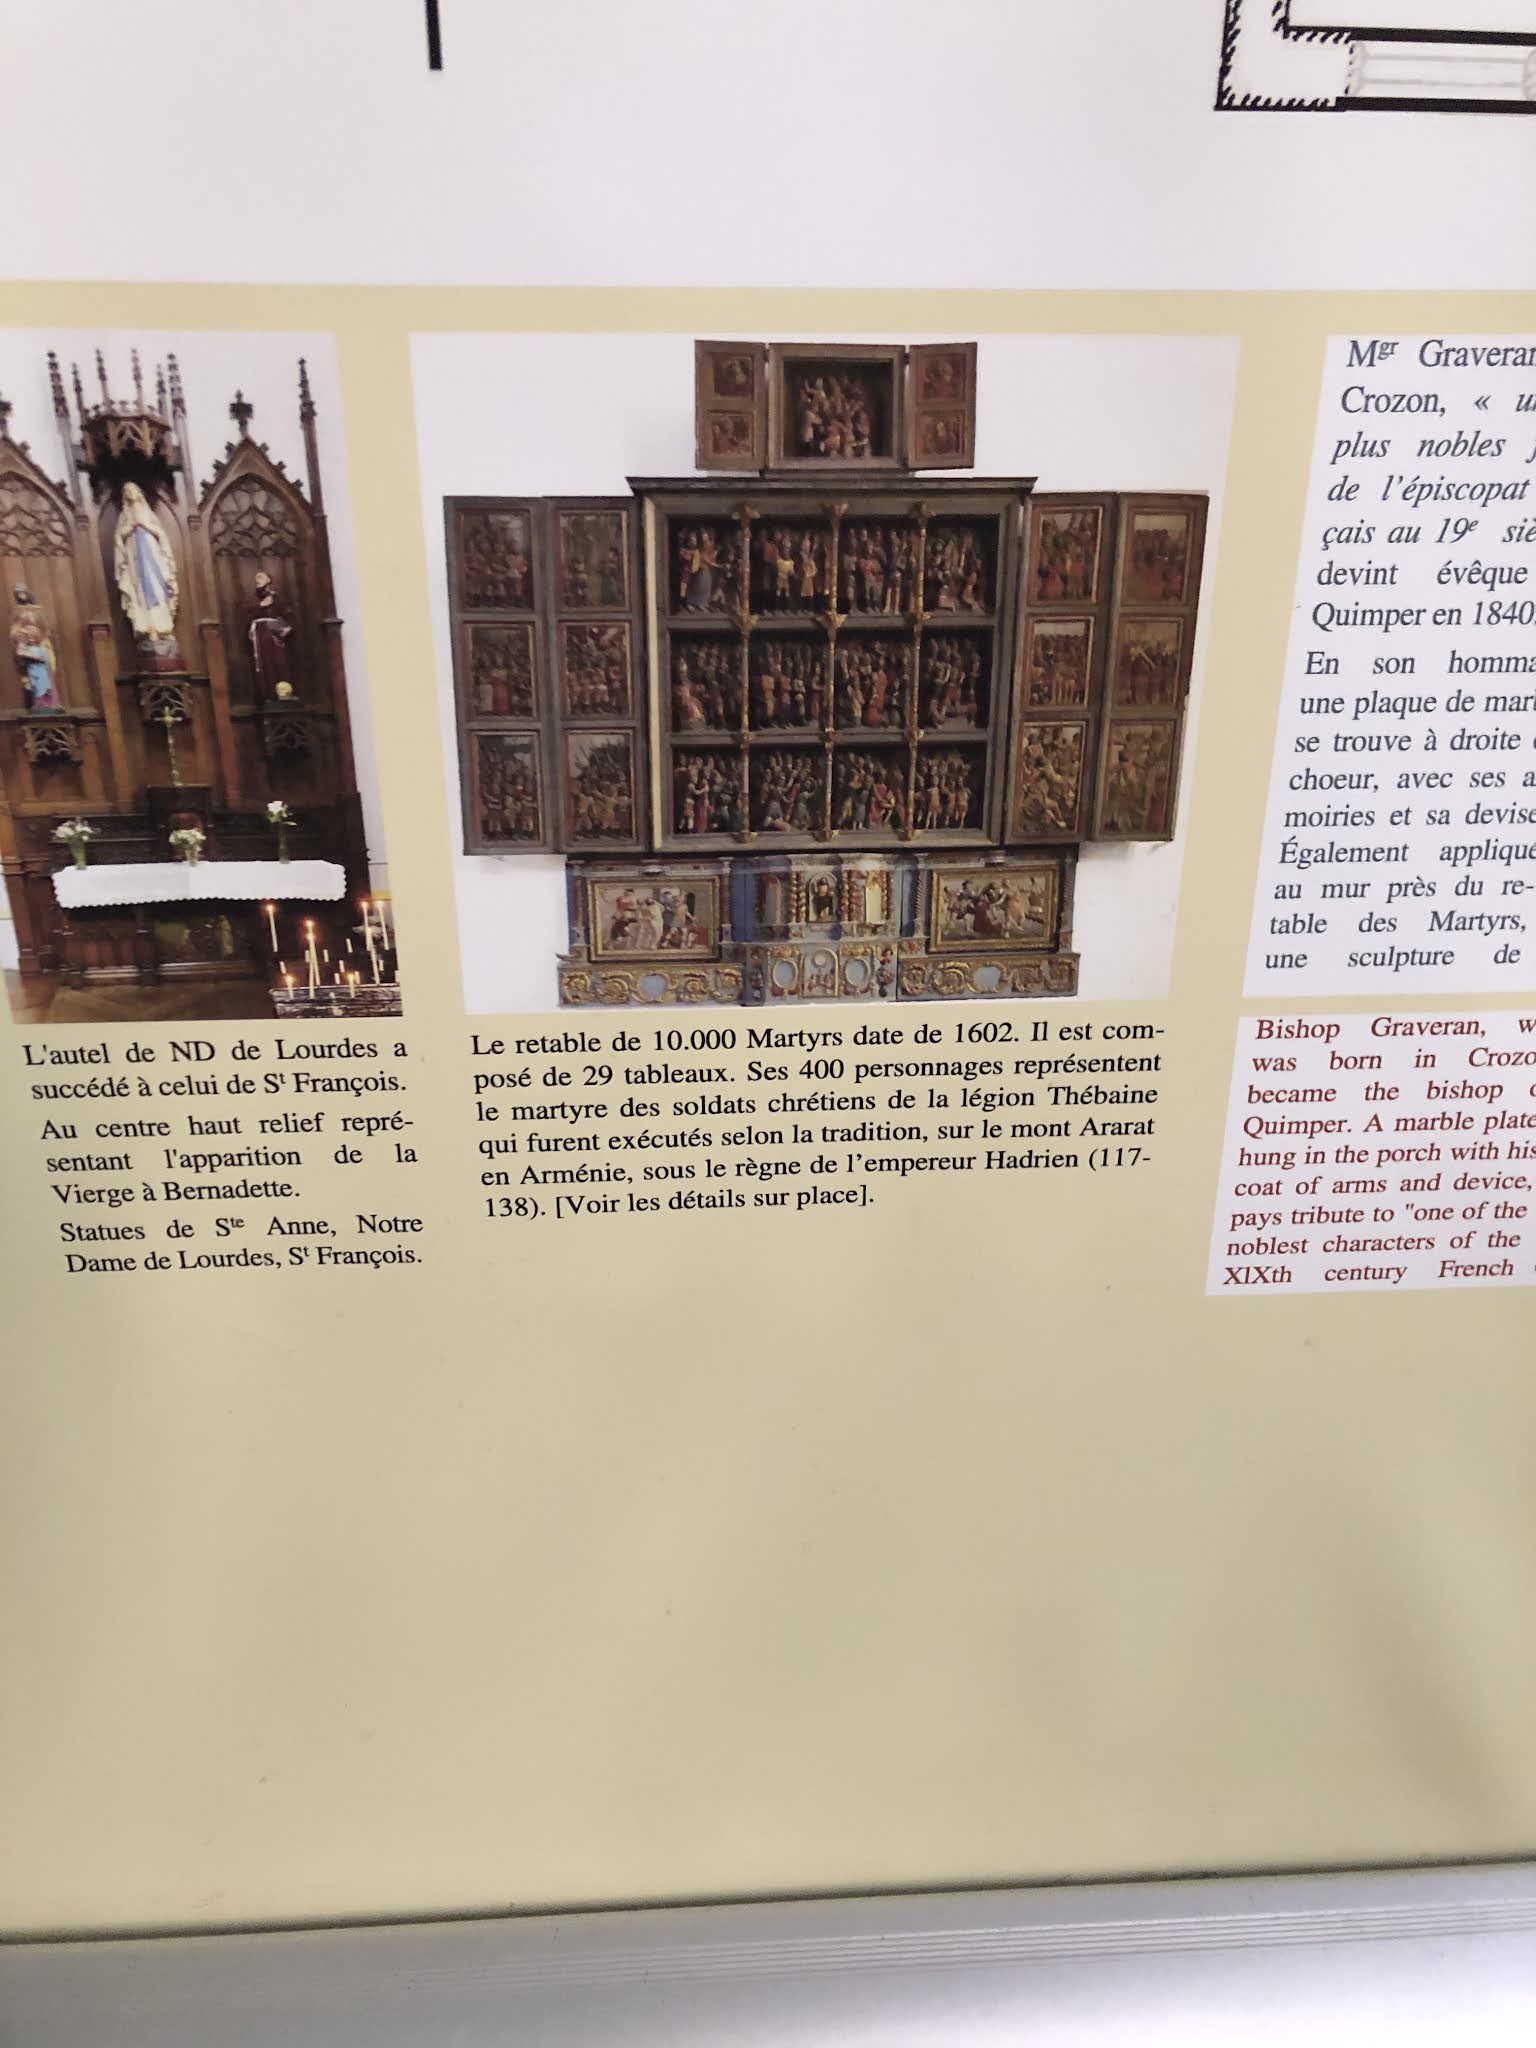 L'autel de ND de Lourdes a
succédé à celui de Sᵗ François.
Au centre haut relief repré-
sentant l'apparition de la
Vierge à Bernadette.
Statues de Sᵗᵉ Anne, Notre
Dame de Lourdes, Sᵗ François.
Le retable de 10.000 Martyrs date de 1602. Il est com-
posé de 29 tableaux. Ses 400 personnages représentent
le martyre des soldats chrétiens de la légion Thébaine
qui furent exécutés selon la tradition, sur le mont Ararat
en Arménie, sous le règne de l’empereur Hadrien (117-
138). [Voir les détails sur place].
Mᵍʳ Graveran
Crozon, «
plus nobles
de l’épiscopat
çais au 19ᵉ
devint évêque
Quimper en 1840
En son
une plaque de
se trouve à droite
choeur, avec ses
moiries et sa devise
Également
au mur près du re-
table des Martyrs,
une sculpture de
Bishop Graveran,
was born in
became the bishop
Quimper. A marble plate
hung in the porch with his
coat of arms and device,
pays tribute to "one of the
noblest characters of the
XlXth century French